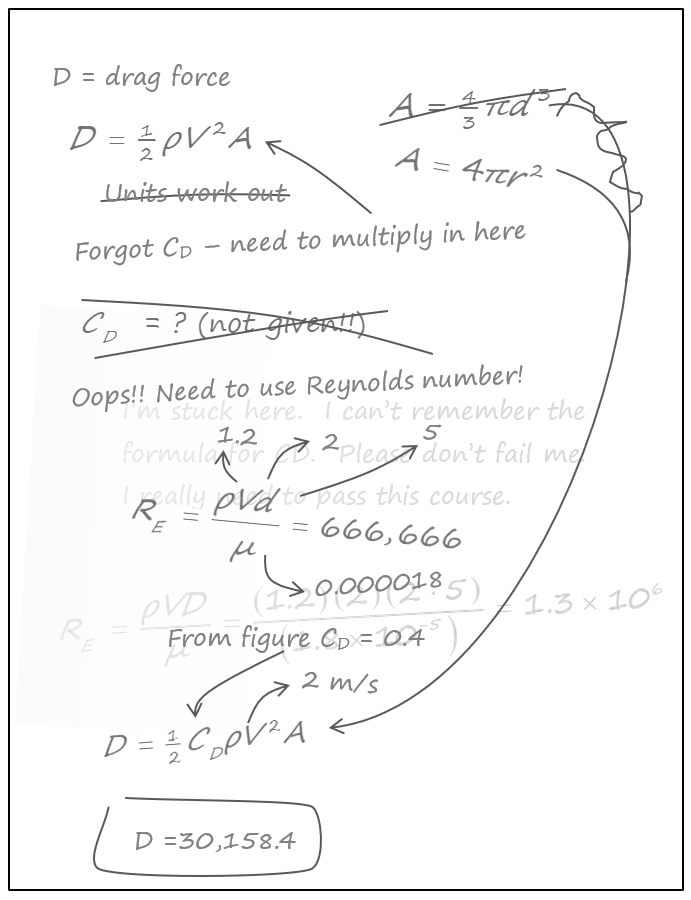 D = drag force
D = 1/2 ρV²A
A = 4/3 πd³
A = 4πr²
Units work out
Forgot C_D – need to multiply in here
C_D = ? (not given!!)
Oops!! Need to use Reynolds number!
I'm stuck here. I can't remember the
formula for CD. Please don't fail me.
I really need to pass this course.
1.2
2
5
R_E = ρVd/μ = 666,666
0.000018
R_E = ρVD/μ = (1.2)(2)(2·5)/(1.8×10⁻⁵) = 1.3 × 10⁶
From figure C_D = 0.4
2 m/s
D = 1/2 C_D ρV²A
D =30,158.4